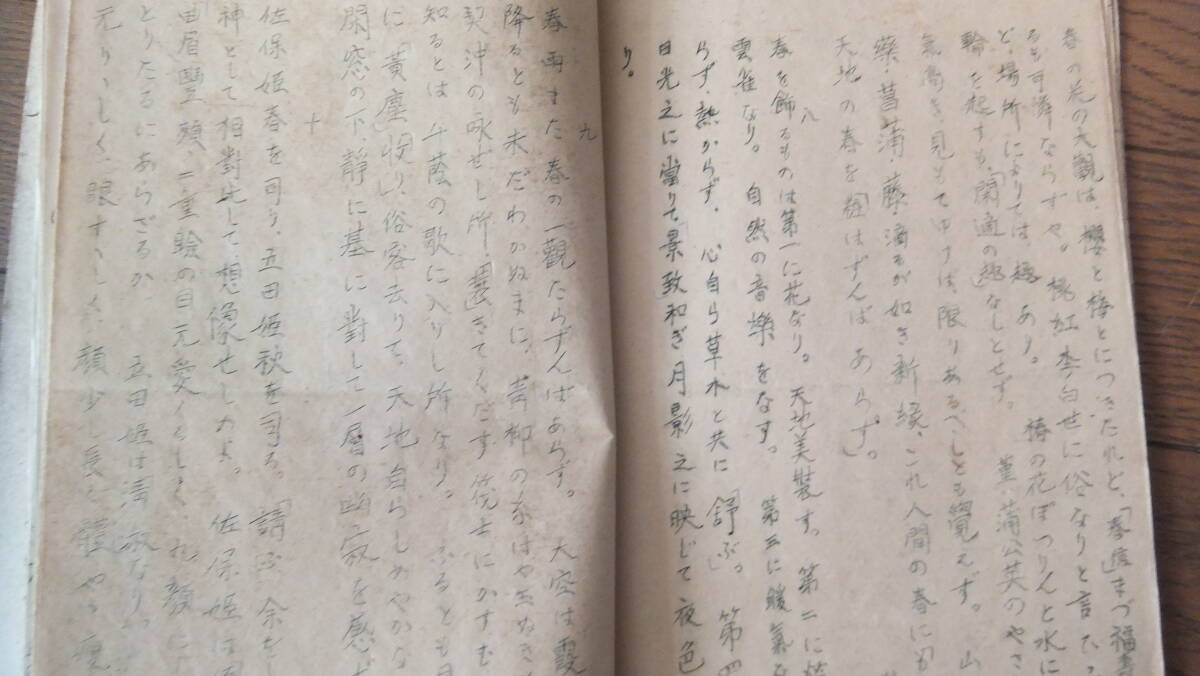 春の花の大觀は櫻と梅とにつきたれど、「春進」まづ福壽
るも可憐ならずや。桃紅李白世に俗なりと言たつ
ど、場所によりては趣あり。椿の花ぽつりんと水に
輪を起すも、「閑適の趣」なしとせず。菫・蒲公英のやさ
氣高き見もてゆけば、限りあるべしとも覺えず。山
藥・菖蒲・藤・滴るが如き新緑、これ人間の春に「別
天地の春を「繪はずんばあらず」。
八
春を飾るものは第一に花なり。天地美裝す。第二に
雲雀なり。自然の音樂をなす。第三に暖氣な
らず、熱からず、心自ら草木と共に「舒ぶ」。第四
日光之に當りて「景致」和ぎ月影之に映じて夜色
り。
九
春雨また春の一觀たらずんばあらず。大空は霞
降るとも未だわかぬまに、青柳の糸はや玉ぬき
契沖の咏ぜし所、「蓑」きてくだす筏士にかすむ
知るとは千蔭の歌に入りし所なり。ふるとも
に「黃塵」「收」り、俗客去りて、天地自らしめやかな
閑窓の下靜に基に對して一層の幽寂を感ず
十
佐保姫春を司り、立田姫秋を司る。「請ふ」余をし
「神として相對先して、想像せしめよ。佐保姫は
曲眉豐頰、二重瞼の目元愛くるしく、丸顔に
とりたるにあらざるか、立田姫は清敏なり。
元りゝしく、眼すゞしく、顔少し長く體やゝ瘦